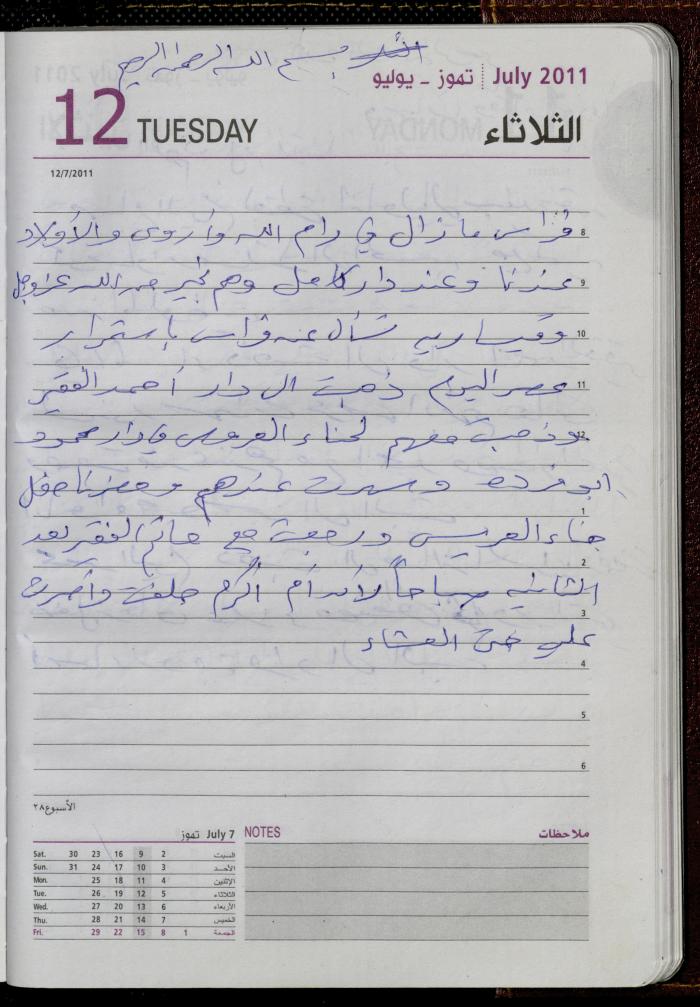 بسم الله الرحمن الرحيم
July 2011 تموز ـ يوليو
12 TUESDAY الثلاثاء
12/7/2011
8 فراس ما زال في رام الله وأروى والأولاد
9 عندنا وعند دار كامل وهم بخير حمد الله عز وجل
10 وميساريه تسأل عن فراس باستمرار
11 عصر اليوم ذهبت ال دار أحمد الفقير
12 وذهبت معهم لحناء العروس في دار محمود
ابو فرده وسهرت عندهم وحضرنا حفل
1
حناء العريس ورجعت مع حاتم الفقير بعد
2
الثانيه صباحاً لأن أم أكرم حلفت وأصرت
3
على العشاء
4
5
6
الأسبوع ٢٨
July 7 تموز
Sat. 30 23 16 9 2 السبت
Sun. 31 24 17 10 3 الأحد
Mon. 25 18 11 4 الإثنين
Tue. 26 19 12 5 الثلاثاء
Wed. 27 20 13 6 الأربعاء
Thu. 28 21 14 7 الخميس
Fri. 29 22 15 8 1 الجمعة
NOTES ملاحظات